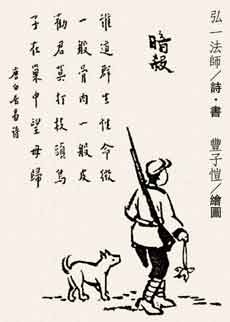 弘一法師/詩・書　豐子愷/繪圖
暗殺
誰道群生性命微
一般骨肉一般皮
勸君莫打枝頭鳥
子在巢中望母歸
唐白居易詩